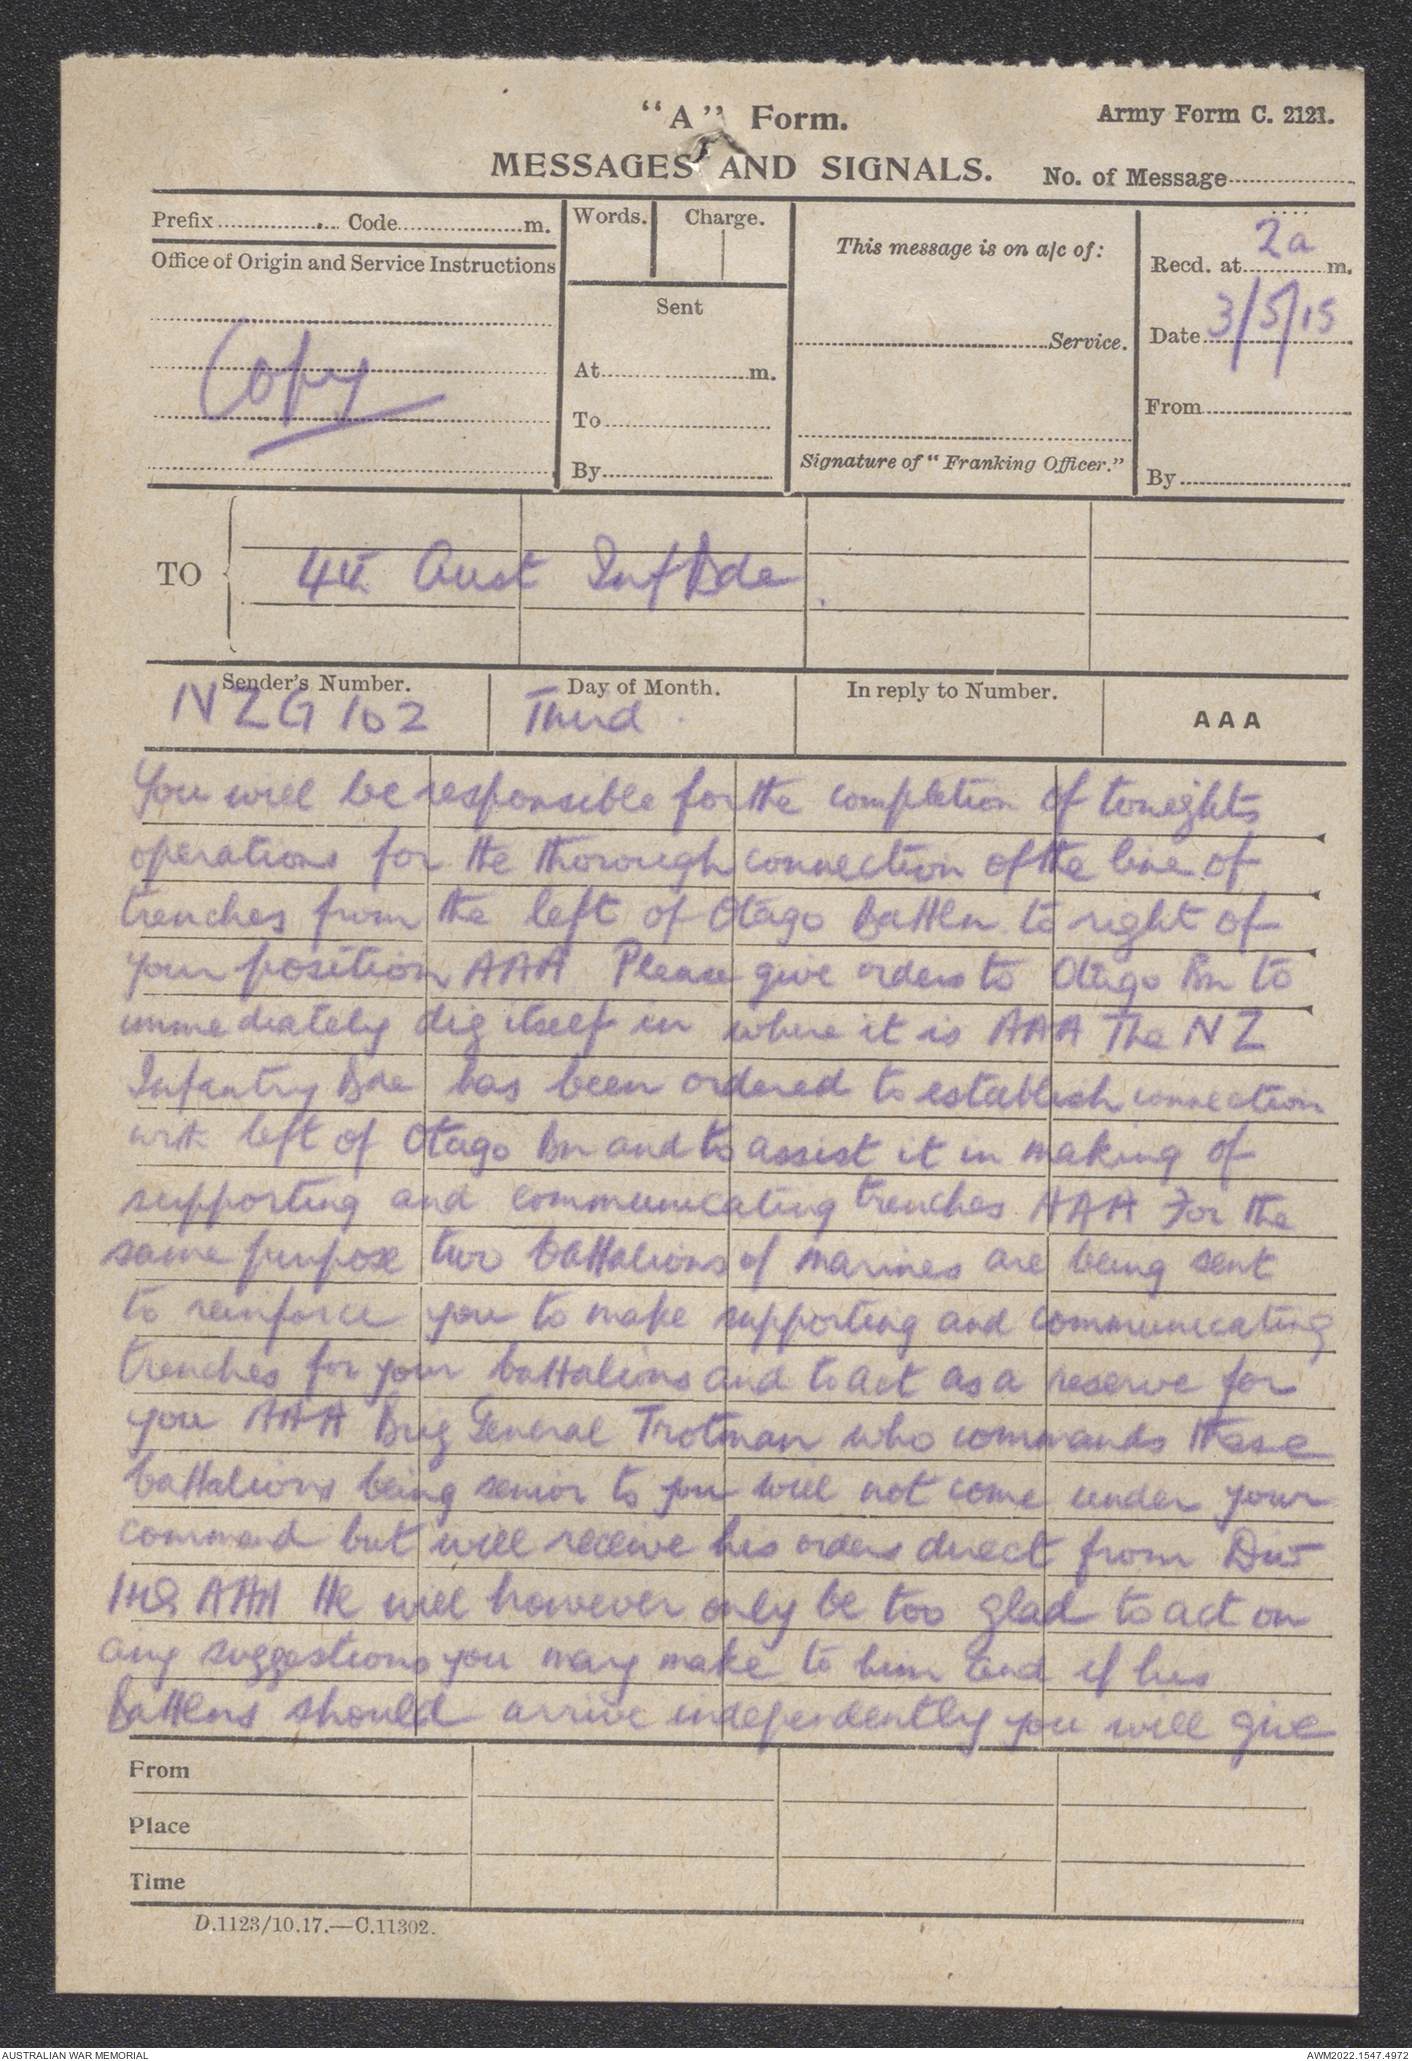 "A" Form.
Army Form C. 2121.
MESSAGES AND SIGNALS.
No. of Message
Prefix Code m.
Words. Charge.
This message is on a/c of:
Recd. at 2a m.
Office of Origin and Service Instructions
Copy
Sent
At m.
To
By
Service.
Signature of "Franking Officer."
Date 3/5/15
From
By
TO 4th Aust Inf Bde.
Sender's Number. Day of Month. In reply to Number.
NZG 102 Third. AAA
You will be responsible for the completion of tonights
operations for the thorough connection of the line of
trenches from the left of Otago Battln to right of
your position AAA Please give orders to Otago Bn to
immediately dig itself in where it is AAA The NZ
Infantry Bde has been ordered to establish connection
with left of Otago Bn and to assist it in making of
supporting and communicating trenches AAA For the
same purpose two battalions of marines are being sent
to reinforce you to make supporting and communicating
trenches for your battalions and to act as a reserve for
you AAA Brig General Trotman who commands these
battalions being senior to you will not come under your
command but will receive his orders direct from Div
HQ AAA He will however only be too glad to act on
any suggestions you may make to him and if his
Battlns should arrive independently you will give
From
Place
Time
D.1123/10.17.—C.11302.
AUSTRALIAN WAR MEMORIAL
AWM2022.1547.4972